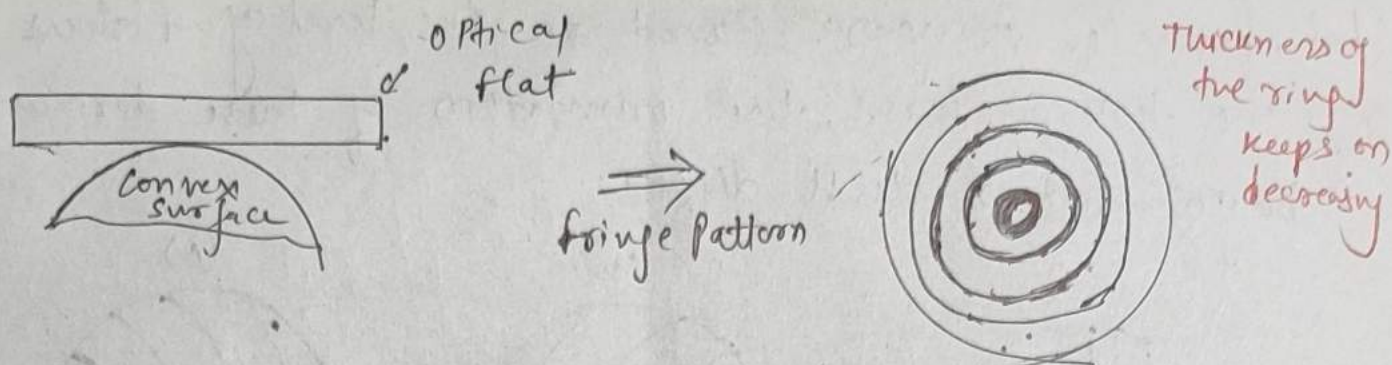 optical
flat
convex
surface
fringe pattern
Thickness of
the rings
keeps on
decreasing